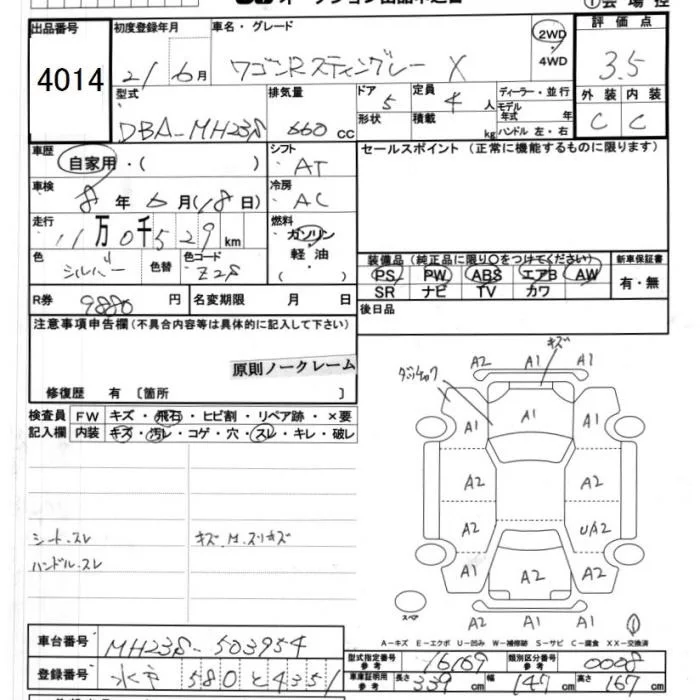 出品番号 初度登録年月 車名・グレード 評価点
4014 21年6月 ワゴンRスティングレー X 2WD・4WD 3.5
型式 排気量 ドア 5 定員 4人 ディーラー・並行 外装 内装
DBA-MH23S 660cc 形状 積載 kg モデル年式 年 ハンドル 左・右 C C
車歴 自家用・( ) シフト AT セールスポイント（正常に機能するものに限ります）
車検 8年6月18日) 冷房 AC
走行 11万0千529km 燃料 ガソリン 軽油 ・( )
色 シルバー 色替 色コード Z2S 装備品（純正品に限り○をつけてください） 新車保証書
PS PW ABS エアB AW 有・無
SR ナビ TV カワ
R券 9880円 名変期限 月 日 後日品
注意事項申告欄(不具合内容等は具体的に記入して下さい)
原則ノークレーム
修復歴 有 〔箇所 〕
検査員 FW キズ・飛石・ヒビ割・リペア跡・×要
記入欄 内装 キズ・汚レ・コゲ・穴・スレ・キレ・破レ
シート、スレ キズ、M、スリキズ
ハンドル、スレ
キズ
A2 A1 A1
A1 A1 A1
A2 A2
A2 UA2
A1 A2 A1
A2 A1 A1
スペア
A-キズ E-エクボ U-凹み W-補修跡 S-サビ C-腐食 XX-交換済
車台番号 MH23S-503954
型式指定番号 参考 16169 類別区分番号 参考 0008
登録番号 水戸 580 と 4351 車庫証明用 参考 長さ 339cm 幅 147cm 高さ 167cm